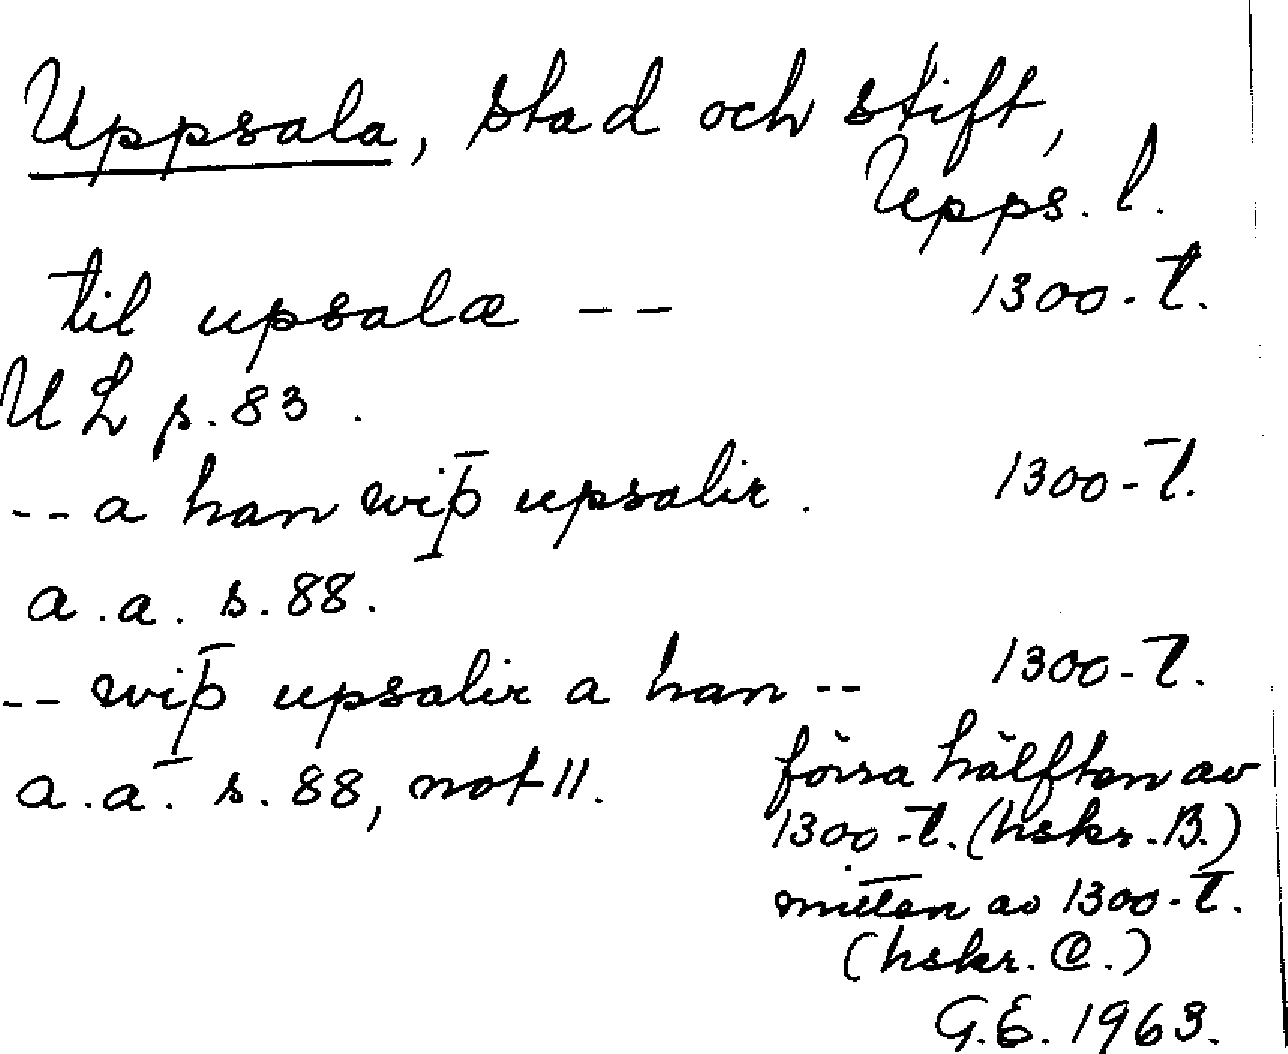 Uppsala, stad och stift,
Upps. l.
til upsalæ -- 1300-t.
UL s. 83.
-- a han wiþ upsalir. 1300-t.
a.a. s. 88.
-- wiþ upsalir a han -- 1300-t.
a.a. s. 88, not 11. förra hälften av
1300-t. (hskr. B.)
mitten av 1300-t.
(hskr. C.)
G.E. 1963.